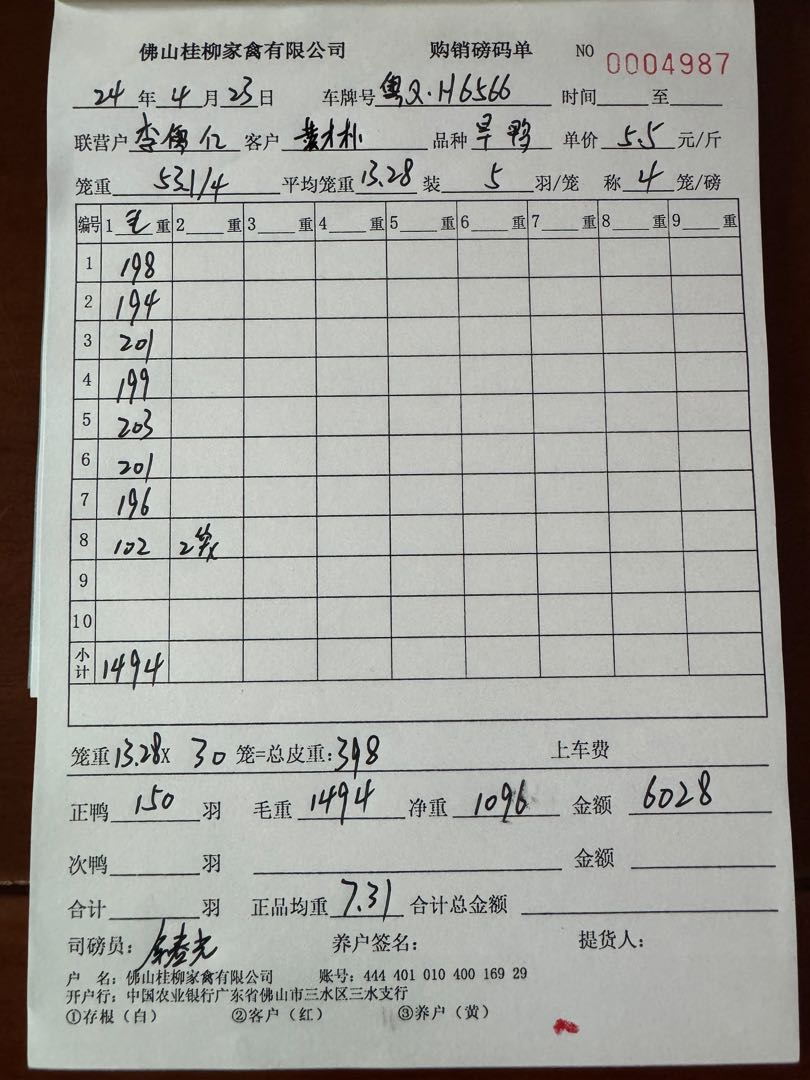 佛山桂柳家禽有限公司 购销磅码单 NO 0004987
24 年 4 月 23 日 车牌号 粤Q·H6566 时间 至
联营户 李 仁 客户 品种 旱鸭 单价 5.5 元/斤
笼重 531/4 平均笼重 13.28 装 5 羽/笼 称 4 笼/磅
编号 1 毛 重 2 重 3 重 4 重 5 重 6 重 7 重 8 重 9 重
1 198
2 194
3 201
4 199
5 203
6 201
7 196
8 102 2笼
9
10
小计 1494
笼重 13.28 X 30 笼=总皮重: 398 上车费
正鸭 150 羽 毛重 1494 净重 1096 金额 6028
次鸭 羽 金额
合计 羽 正品均重 7.31 合计总金额
司磅员: 养户签名: 提货人:
户 名: 佛山桂柳家禽有限公司 账号: 444 401 010 400 169 29
开户行: 中国农业银行广东省佛山市三水区三水支行
①存根（白） ②客户（红） ③养户（黄）